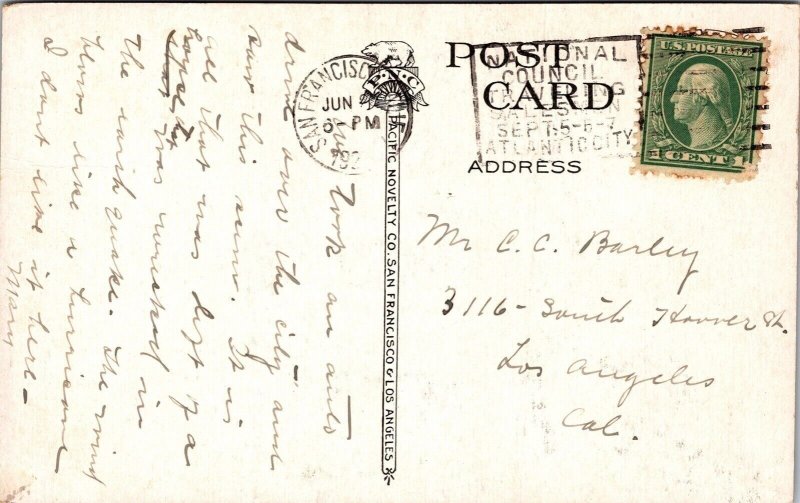 POST
CARD
ADDRESS
SAN FRANCISCO
JUN
6 - PM
192
NATIONAL
COUNCIL
TRAVELING
SALESMEN
SEPT. 5-6-7
ATLANTIC CITY
U.S. POSTAGE
1 CENT 1
P.N.C.
PACIFIC NOVELTY CO. SAN FRANCISCO & LOS ANGELES
Took an auto
drive over the city and
saw this view. It is
all that was left of a
that was wrecked in
the earthquake. The wind
blows like a hurricane
I dont like it here -
Mary
Mr C. C. Barley
3116 - South Hoover St.
Los Angeles
Cal.